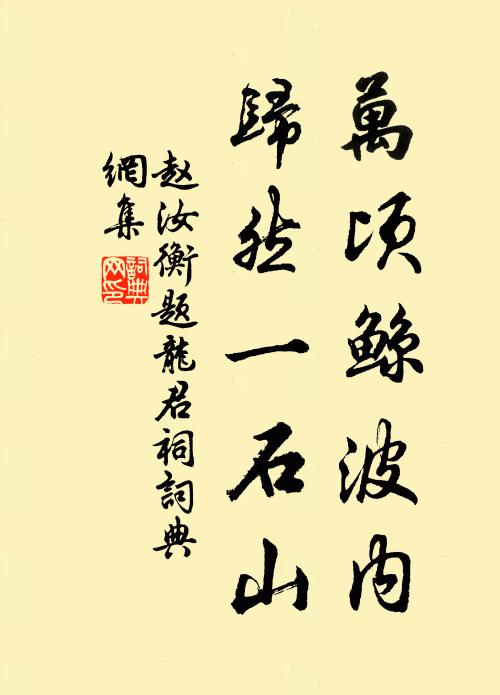 萬頃鯨波內
歸然一石山
赵汝衡题龍君祠詞典
網集
詞典
网印